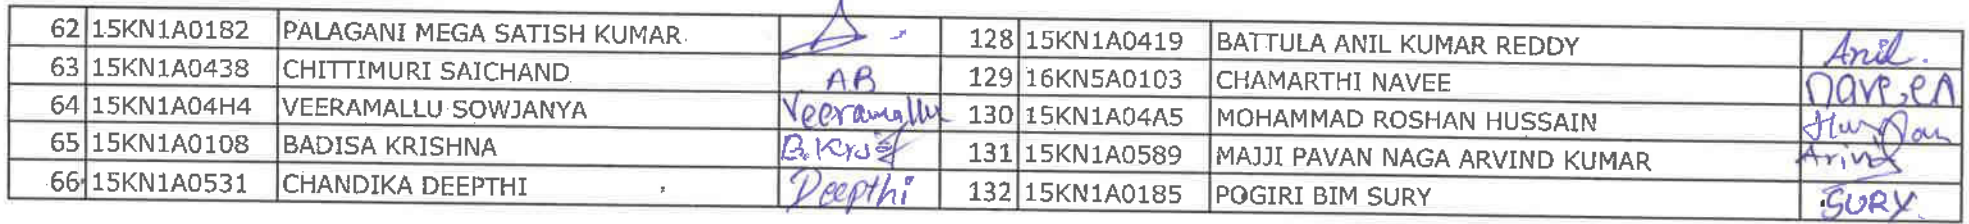 62 15KN1A0182 PALAGANI MEGA SATISH KUMAR 128 15KN1A0419 BATTULA ANIL KUMAR REDDY Anil.
63 15KN1A0438 CHITTIMURI SAICHAND AB 129 16KN5A0103 CHAMARTHI NAVEE naveen
64 15KN1A04H4 VEERAMALLU SOWJANYA Veeramallu 130 15KN1A04A5 MOHAMMAD ROSHAN HUSSAIN
65 15KN1A0108 BADISA KRISHNA 131 15KN1A0589 MAJJI PAVAN NAGA ARVIND KUMAR
66 15KN1A0531 CHANDIKA DEEPTHI Deepthi 132 15KN1A0185 POGIRI BIM SURY SURY